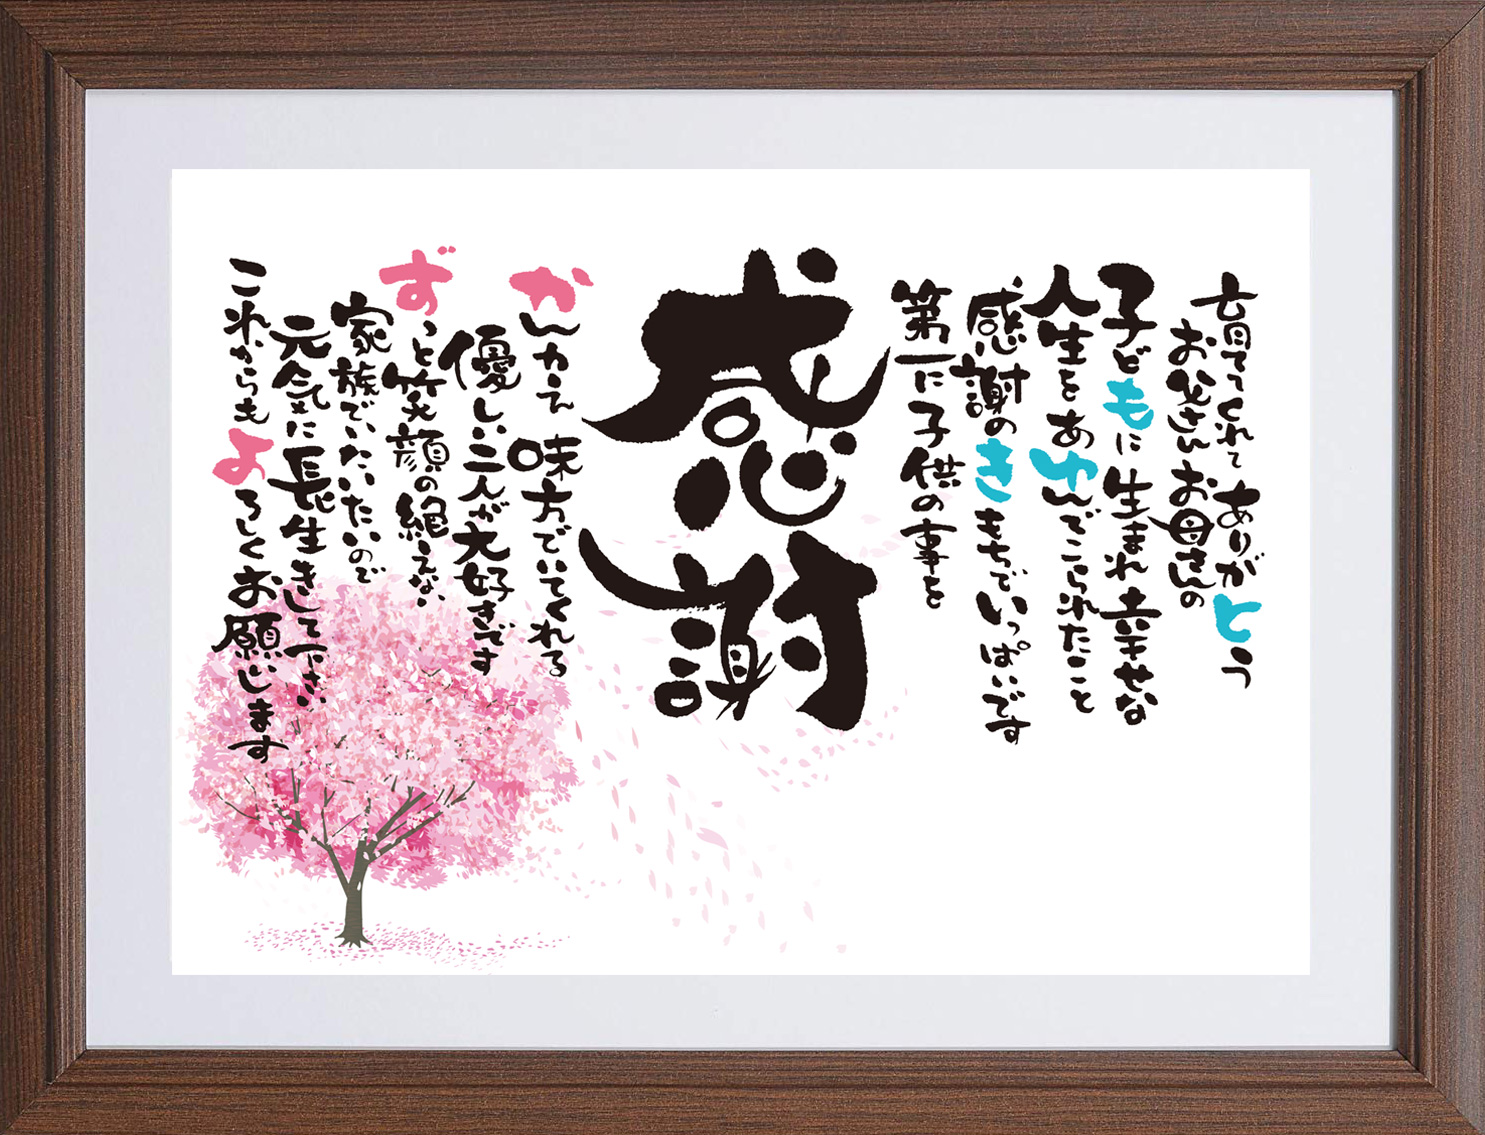 育ててくれてありがとう
お父さんお母さんの
子どもに生まれ幸せな
人生をあゆんでこられたこと
感謝のきもちでいっぱいです
第一に子供の事を
感謝
かんがえ 味方でいてくれる
優しい二人が大好きです
ずっと笑顔の絶えない
家族でいたいので
元気に長生きして下さい
これからもよろしくお願いします